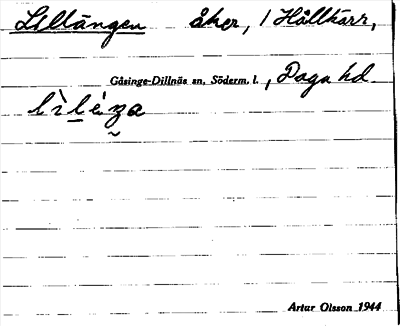 Lillängen åker, / Hållkärr,
Gåsinge-Dillnäs sn, Söderm. l., Daga hd
Artur Olsson 1944